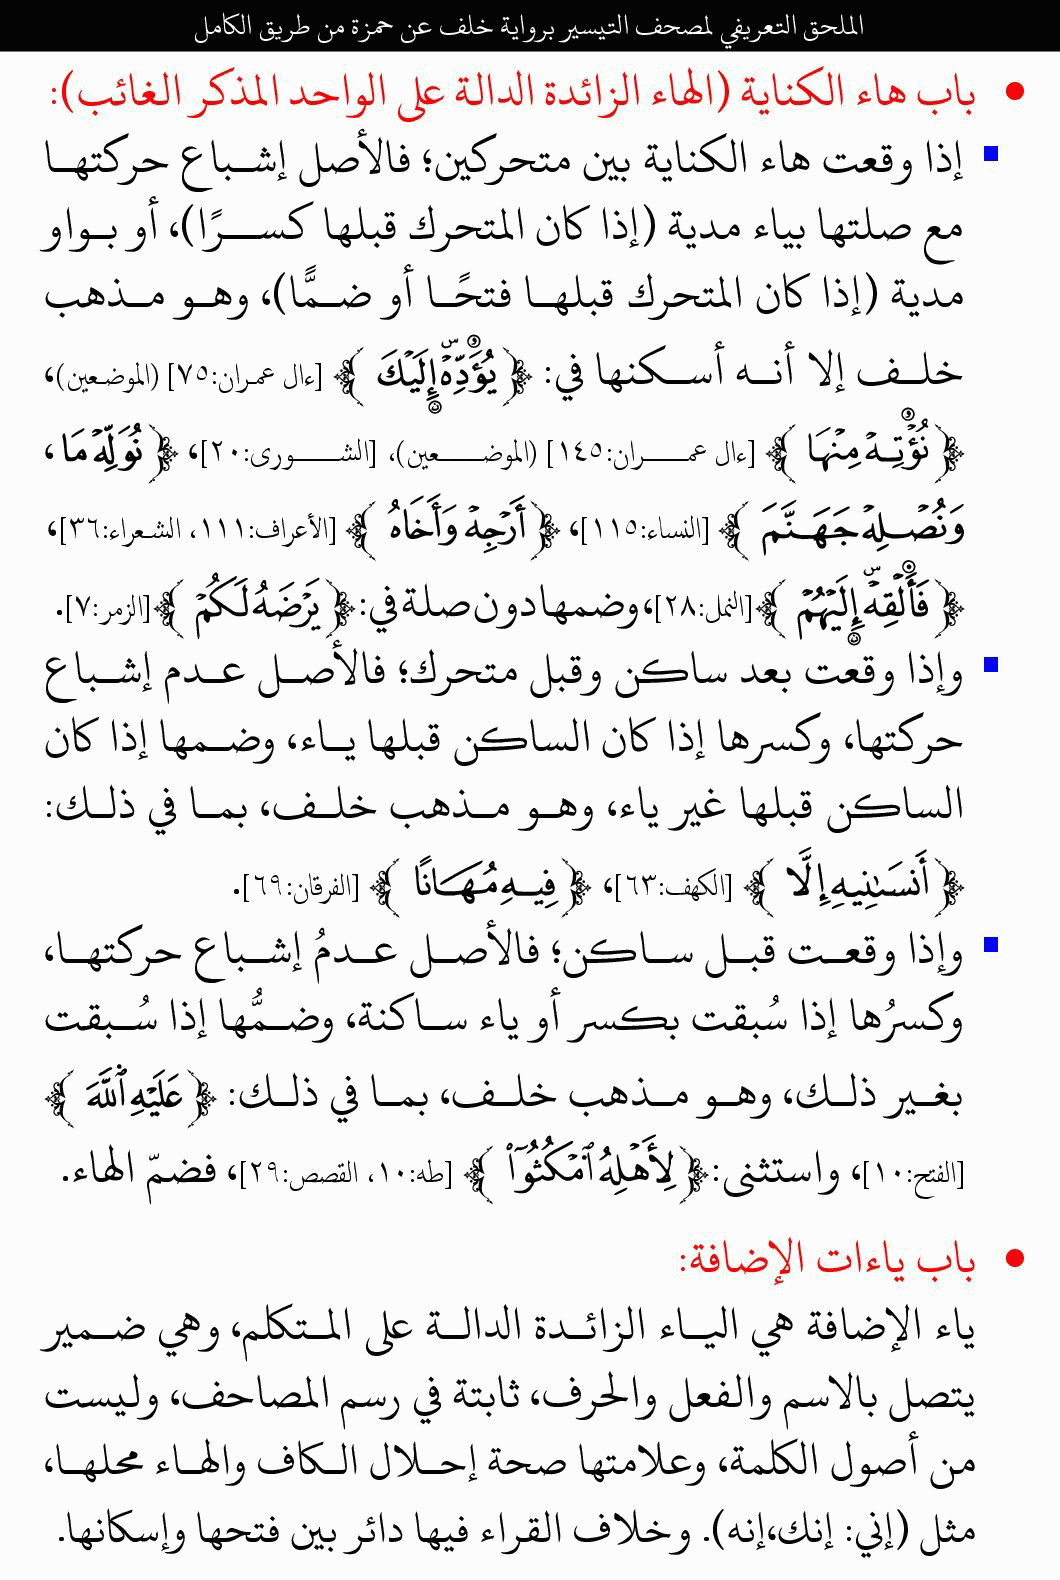 الملحق التعريفي لمصحف التيسير برواية خلف عن حمزة من طريق الكامل
• باب هاء الكناية (الهاء الزائدة الدالة على الواحد المذكر الغائب):
▪ إذا وقعت هاء الكناية بين متحركين؛ فالأصل إشباع حركتها
مع صلتها بياء مدية (إذا كان المتحرك قبلها كسرًا)، أو بواو
مدية (إذا كان المتحرك قبلها فتحًا أو ضمًّا)، وهو مذهب
خلف إلا أنه أسكنها في: ﴿يُؤَدِّهۡ إِلَيۡكَ﴾ [ءال عمران:٧٥] (الموضعين)،
﴿نُؤۡتِهۡ مِنۡهَا﴾ [ءال عمران:١٤٥] (الموضعين)، [الشورى:٢٠]، ﴿نُوَلِّهۡ مَا،
وَنُصۡلِهۡ جَهَنَّمَ﴾ [النساء:١١٥]، ﴿أَرۡجِهۡ وَأَخَاهُ﴾ [الأعراف:١١١، الشعراء:٣٦]،
﴿فَأَلۡقِهۡ إِلَيۡهُمۡ﴾ [النمل:٢٨]، وضمها دون صلة في: ﴿يَرۡضَهُ لَكُمۡ﴾ [الزمر:٧].
▪ وإذا وقعت بعد ساكن وقبل متحرك؛ فالأصل عدم إشباع
حركتها، وكسرها إذا كان الساكن قبلها ياء، وضمها إذا كان
الساكن قبلها غير ياء، وهو مذهب خلف، بما في ذلك:
﴿أَنسَىٰنِيهِ إِلَّا﴾ [الكهف:٦٣]، ﴿فِيهِ مُهَانًا﴾ [الفرقان:٦٩].
▪ وإذا وقعت قبل ساكن؛ فالأصل عدمُ إشباع حركتها،
وكسرُها إذا سُبقت بكسر أو ياء ساكنة، وضمُّها إذا سُبقت
بغير ذلك، وهو مذهب خلف، بما في ذلك: ﴿عَلَيۡهِ ٱللَّهَ﴾
[الفتح:١٠]، واستثنى: ﴿لِأَهۡلِهُ ٱمۡكُثُوٓاْ﴾ [طه:١٠، القصص:٢٩]، فضمّ الهاء.
• باب ياءات الإضافة:
ياء الإضافة هي الياء الزائدة الدالة على المتكلم، وهي ضمير
يتصل بالاسم والفعل والحرف، ثابتة في رسم المصاحف، وليست
من أصول الكلمة، وعلامتها صحة إحلال الكاف والهاء محلها،
مثل (إني: إنك،إنه). وخلاف القراء فيها دائر بين فتحها وإسكانها.